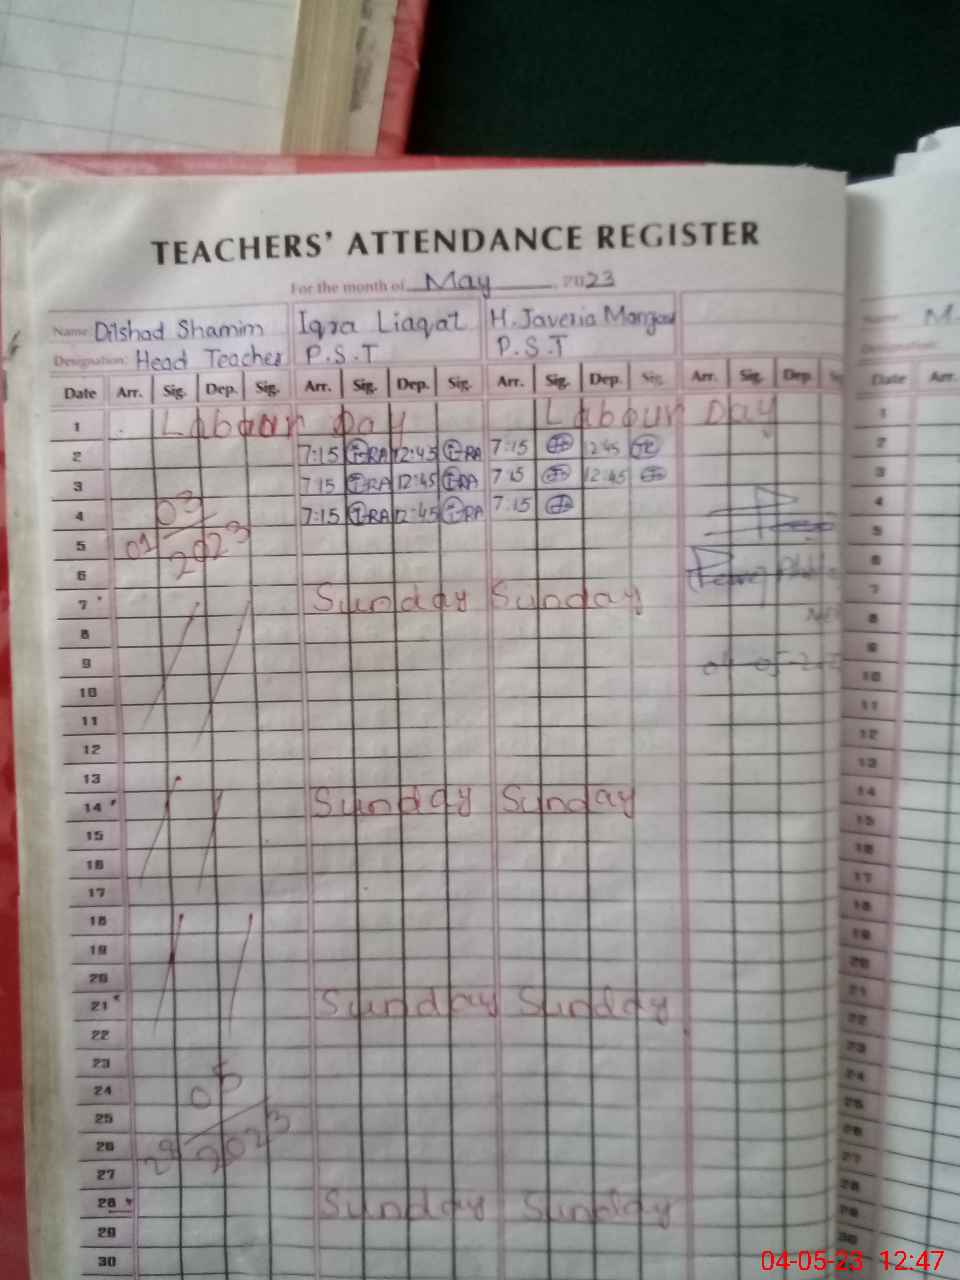 TEACHERS' ATTENDANCE REGISTER
For the month of May, 2023
Name: Dilshad Shamim Iqra Liaqat H. Javeria
Designation: Head Teacher P.S.T P.S.T
Date Arr. Sig. Dep. Sig. Arr. Sig. Dep. Sig. Arr. Sig. Dep. Sig. Arr. Sig. Dep. Date Arr.
1 Labour Day Labour Day 1
2 7:15 12:45 7:15 12:45 2
3 7:15 12:45 7:15 12:45 3
4 7:15 12:45 7:15 4
5 5
6 6
7 Sunday Sunday 7
8 8
9 9
10 10
11 11
12 12
13 13
14 Sunday Sunday 14
15 15
16 16
17 17
18 18
19 19
20 20
21 Sunday Sunday 21
22 22
23 23
24 24
25 25
26 26
27 27
28 Sunday Sunday 28
29 29
30 30
01/03/2023
29/05/2023
04-05-23 12:47